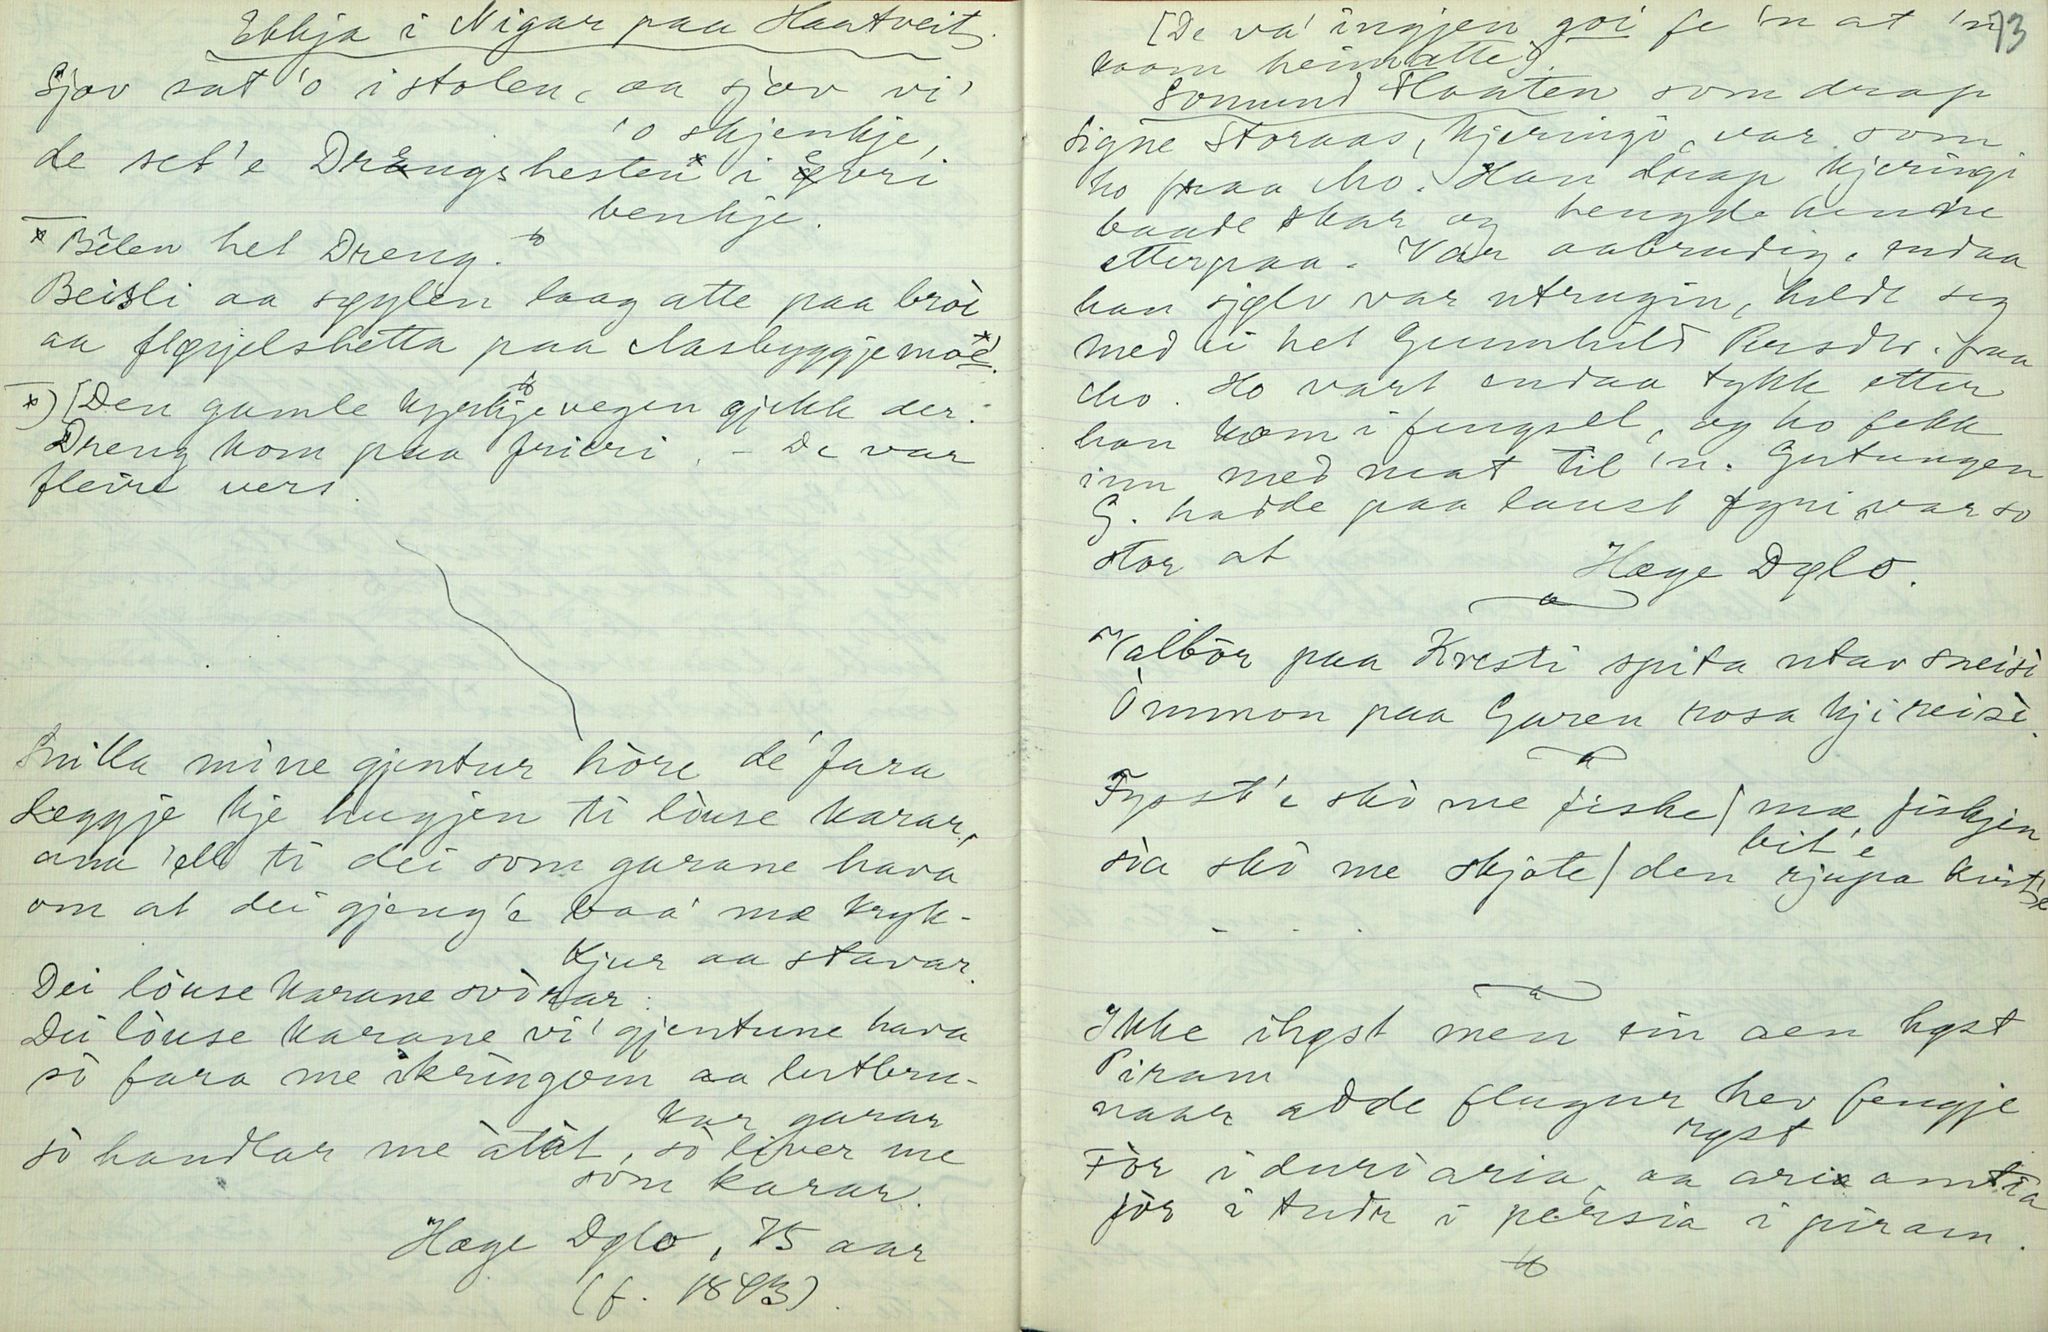 Ekkja i Nigar paa Haatveit
Sjov sat 'o i stolen, aa sjov vi'
'o skjenkje,
de set'e Drengshesten i øvri
benkje.
x Bêlen het Dreng.
Beisli aa sylen laag atte paa bròi
aa fløyelshetta paa Aasbyggjemoé.
x) [Den gamle kyrkjevegen gjekk der.
Dreng kom paa frieri. – De var
fleire vers.
Snilla mine gjentur hòre dé fara
Leggje kje hugjen ti lòuse karar,
ana 'ell ti dei som garane hava
om at dei gjeng'e baa' mæ kryk-
kjur aa stavar.
Dei lòuse karane svòrar:
Dei lòuse karane vi' gjentune hava
sò fara me ikringom aa leitbru-
kar garar
sò handlar me àtàt, sò liver me
som karar.
Hæge Dølo, 75 aar
(f. 1843).
73
[De va' ingjen goi fe 'n at 'n
koom heimatte].
Somund Haaten som drap
Signe Storaas, kjeringi var som
ho fraa Mo. Han drap kjeringi
baade skar og hengde henne
etterpaa. Var aabrudig, endaa
han sjølv var utrugin, heldt seg
med ei het Gunnhild Persdtr. fraa
Mo. Ho vart endaa tykk etter
han kom i fengsel, og ho fekk
inn med mat til 'n. Gutungen
G. hadde paa laust fyri var so
stor at
Hæge Dølo.
Valbòr paa Kvesti spita utav sneisi
Òmmon paa Garen rosa kji reisi.
Fysst'e skò me fiske / mæ fiskjen
bit'e
sia skò me skjote / den rjupa kvit'e
Ikke ihøst men sin aen høst
Piram
naar adde flugur hev fengje
røst
Fòr i duri aria, aa aria amtia
fòr i tudr i persia i piram.